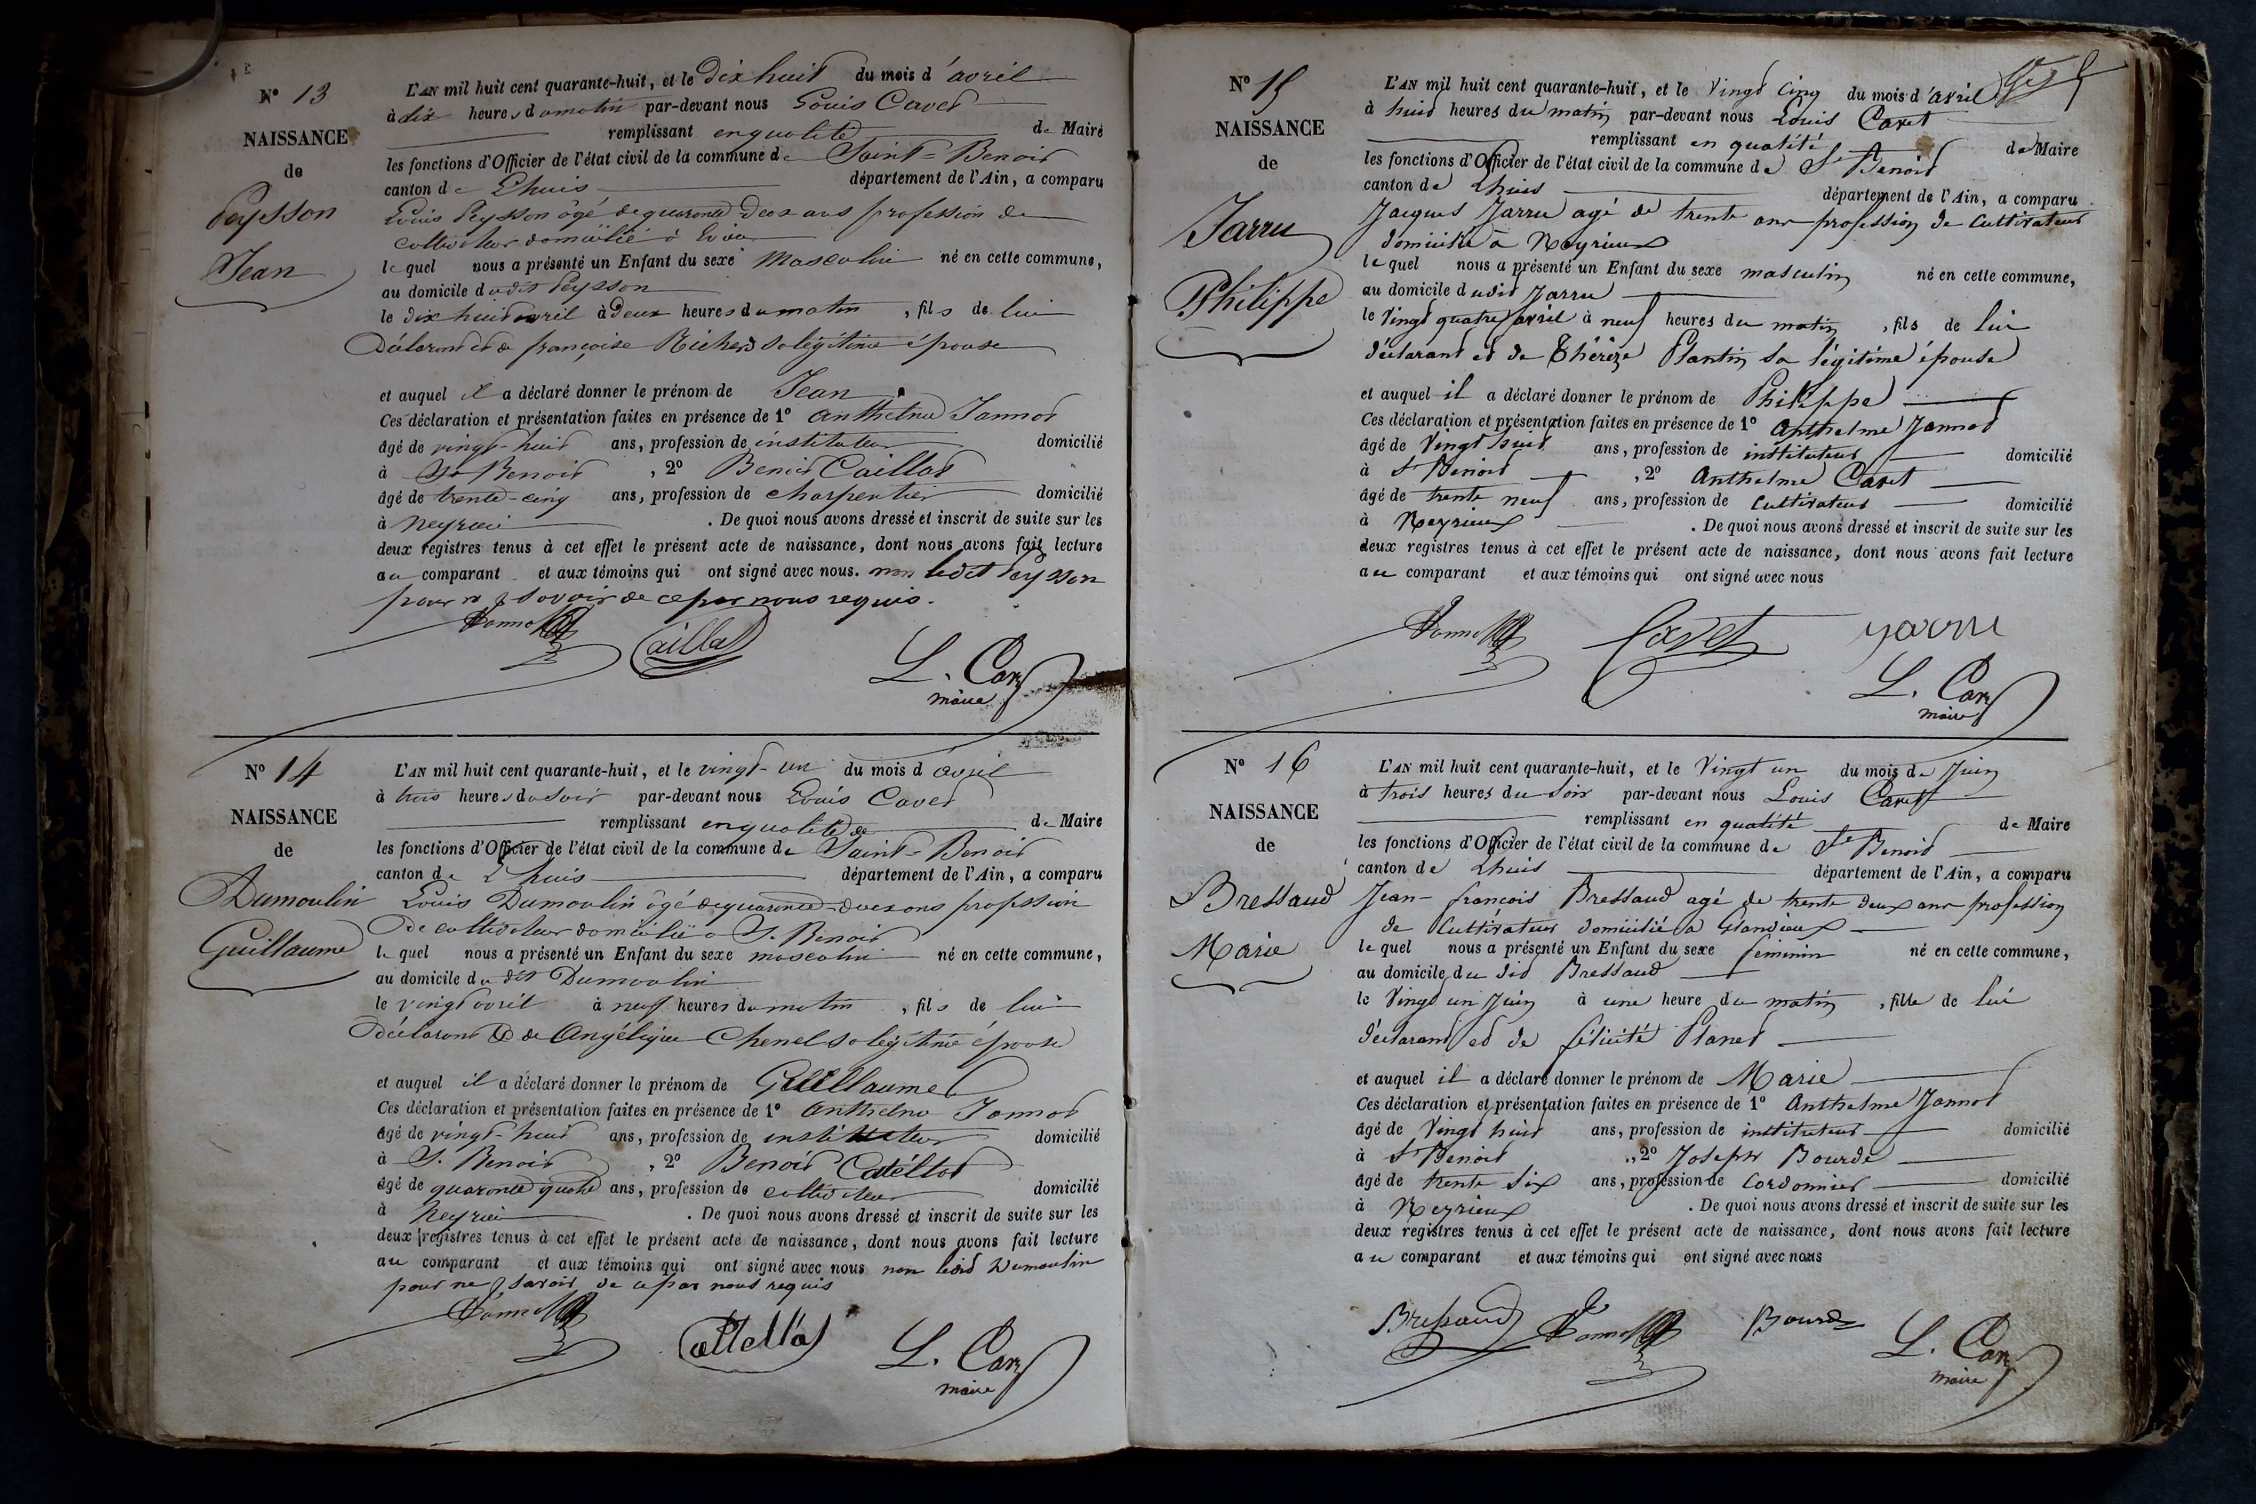 N° 13
NAISSANCE
de
Peysson
Jean
L'AN mil huit cent quarante-huit, et le dix huit du mois d'avril
à dix heures du matin par-devant nous Louis Cavet
remplissant en qualité de Maire
les fonctions d'Officier de l'état civil de la commune de Saint-Benoit
canton de Lhuis département de l'Ain, a comparu
Louis Peysson âgé de quarante deux ans profession de
cultivateur domicilié à
le quel nous a présenté un Enfant du sexe masculin né en cette commune,
au domicile du dit Peysson
le dix huit avril à deux heures du matin, fils de lui
déclarant et de françoise Richerd sa légitime épouse
et auquel il a déclaré donner le prénom de Jean
Ces déclaration et présentation faites en présence de 1° Anthelme Jannod
âgé de vingt-huit ans, profession de instituteur domicilié
à St Benoit, 2° Benoit Caillat
âgé de trente-cinq ans, profession de charpentier domicilié
à Neyrieu. De quoi nous avons dressé et inscrit de suite sur les
deux registres tenus à cet effet le présent acte de naissance, dont nous avons fait lecture
au comparant et aux témoins qui ont signé avec nous. non ledit Peysson
pour ne savoir de ce par nous requis.
Caillat
L. Cavet
maire
N° 14
NAISSANCE
de
Dumoulin
Guillaume
L'AN mil huit cent quarante-huit, et le vingt-un du mois d'avril
à trois heures du soir par-devant nous Louis Cavet
remplissant en qualité de de Maire
les fonctions d'Officier de l'état civil de la commune de Saint-Benoit
canton de Lhuis département de l'Ain, a comparu
Louis Dumoulin âgé de quarante-deux ans profession
de cultivateur domicilié a St. Benoit
le quel nous a présenté un Enfant du sexe masculin né en cette commune,
au domicile du dit Dumoulin
le vingt avril à neuf heures du matin, fils de lui
déclarant et de Angélique Chenel sa légitime épouse
et auquel il a déclaré donner le prénom de Guillaume
Ces déclaration et présentation faites en présence de 1° Anthelme Jannod
âgé de vingt-huit ans, profession de instituteur domicilié
à St. Benoit, 2° Benoit Catellod
âgé de quarante quatre ans, profession de cultivateur domicilié
à Neyrieu. De quoi nous avons dressé et inscrit de suite sur les
deux registres tenus à cet effet le présent acte de naissance, dont nous avons fait lecture
au comparant et aux témoins qui ont signé avec nous non ledit Dumoulin
pour ne savoir de ce par nous requis
L. Cavet
maire
N° 15
NAISSANCE
de
Jarru
Philippe
L'AN mil huit cent quarante-huit, et le Vingt cinq du mois d'avril
à huit heures du matin par-devant nous Louis Cavet
remplissant en qualité de Maire
les fonctions d'Officier de l'état civil de la commune de St Benoit
canton de Lhuis département de l'Ain, a comparu
Jacques Jarru agé de trente ans profession de Cultivateur
domicilié à Neyrieux
le quel nous a présenté un Enfant du sexe masculin né en cette commune,
au domicile dudit Jarru
le Vingt quatre avril à neuf heures du matin, fils de lui
déclarant et de Thérèze Plantin sa légitime épouse
et auquel il a déclaré donner le prénom de Philippe
Ces déclaration et présentation faites en présence de 1° Anthelme Jannod
âgé de Vingt huit ans, profession de instituteur domicilié
à St Benoit, 2° Anthelme Cavet
âgé de trente neuf ans, profession de Cultivateur domicilié
à Neyrieux. De quoi nous avons dressé et inscrit de suite sur les
deux registres tenus à cet effet le présent acte de naissance, dont nous avons fait lecture
au comparant et aux témoins qui ont signé avec nous
Cavet
L. Cavet
maire
N° 16
NAISSANCE
de
Bressaud
Marie
L'AN mil huit cent quarante-huit, et le Vingt un du mois de Juin
à trois heures du soir par-devant nous Louis Cavet
remplissant en qualité de Maire
les fonctions d'Officier de l'état civil de la commune de St Benoit
canton de Lhuis département de l'Ain, a comparu
Jean-françois Bressaud agé de trente deux ans profession
de Cultivateur domicilié a Glandieux
le quel nous a présenté un Enfant du sexe féminin né en cette commune,
au domicile du dit Bressaud
le Vingt un Juin à une heure du matin, fille de lui
déclarant et de félicité Planet
et auquel il a déclaré donner le prénom de Marie
Ces déclaration et présentation faites en présence de 1° Anthelme Jannod
âgé de Vingt huit ans, profession de instituteur domicilié
à St Benoit, 2° Joseph Bourde
âgé de trente six ans, profession de Cordonnier domicilié
à Neyrieux. De quoi nous avons dressé et inscrit de suite sur les
deux registres tenus à cet effet le présent acte de naissance, dont nous avons fait lecture
au comparant et aux témoins qui ont signé avec nous
Bressaud Bourde
L. Cavet
maire